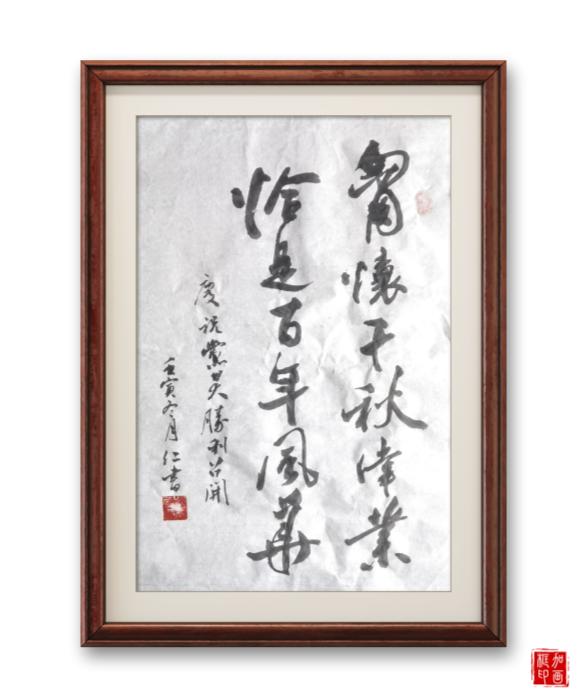 胷懷千秋偉業
恰是百年風華
慶祝黨大勝利召開
壬寅冬月仁書
加画
框印